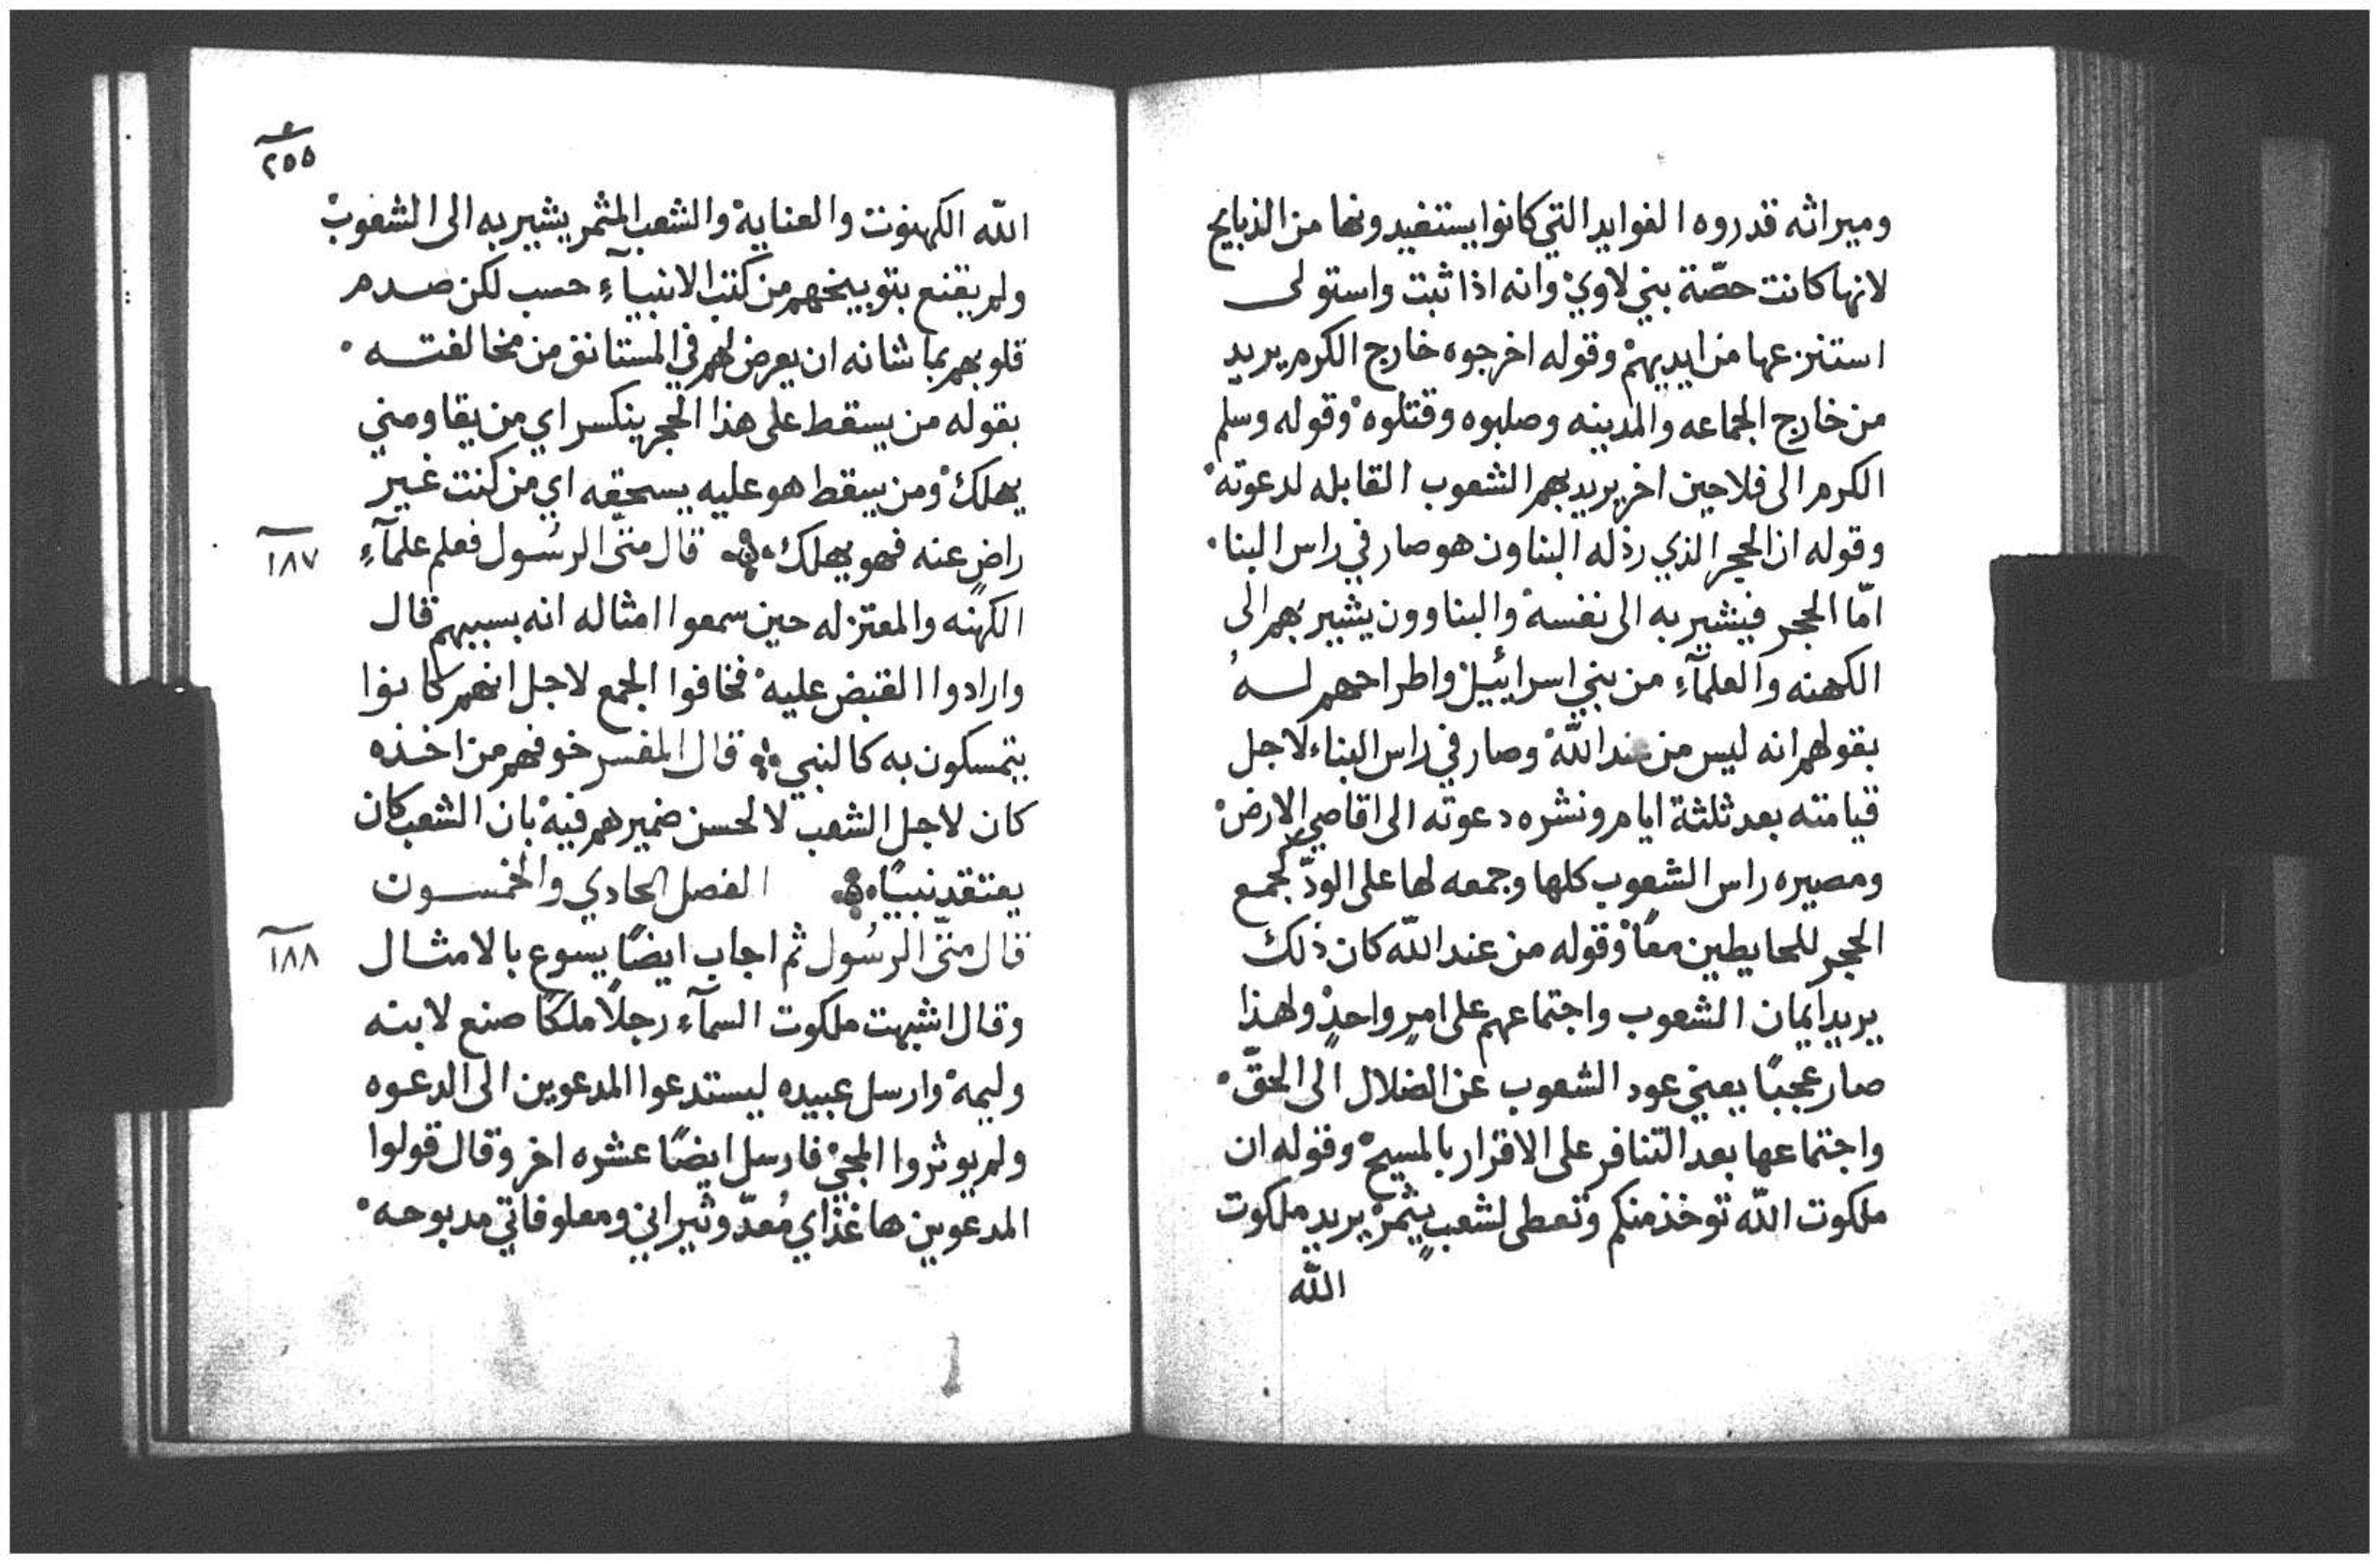 وميراثه قدروه الفوايد التي كانوا يستفيدونها من الذبايح
لانها كانت حصّة بني لاوي وانه اذا ثبت واستولى
استنزعها من ايديهم وقوله اخرجوه خارج الكرم يريد
من خارج الجماعه والمدينه وصلبوه وقتلوه وقوله وسلم
الكرم الى فلاحين اخر يريد بهم الشعوب القابله لدعوته
وقوله ان الحجر الذي رذله البناون هو صار في راس البنا
امّا الحجر فيشير به الى نفسه والبناوون يشير بهم الى
الكهنه والعلمآءِ من بني اسرائيل واطراحهم لهُ
بقولهم انه ليس من عند اللّه وصار في راس البناء لاجل
قيامته بعد ثلثة ايام ونشره دعوته الى اقاصي الارض
ومصيره راس الشعوب كلها وجمعه لها على الودّ كجمع
الحجر للحايطين معًا وقوله من عند اللّه كان ذلك
يريد ايمان الشعوب واجتماعهم على امرٍ واحدٍ ولهذا
صار عجبًا يعني عود الشعوب عن الضلال الى الحقّ
واجتماعها بعد التنافر على الاقرار بالمسيح وقوله ان
ملكوت اللّه توخذ منكم وتعطى لشعبٍ يثمر يريد ملكوت
اللّه
٢٥٥
اللّه الكهنوت والعناية والشعب المثمر يشير به الى الشعوب
ولم يقنع بتوبيخهم من كتب الانبيآءِ حسب لكن صدم
قلوبهم بما شانه ان يعرض لهم في المستانف من مخالفته
بقوله من يسقط على هذا الحجر ينكسر اي من يقاومني
يهلك ومن يسقط هو عليه يسحقه اي من كنت غير
راضٍ عنه فهو يهلك قال متّى الرسُول فعلم علمآءِ
١٨٧
الكهنه والمعتزله حين سمعوا امثاله انه بسببهم قال
وارادوا القبض عليه فخافوا الجمع لاجل انهم كانوا
يتمسكون به كالنبي قال المفسر خوفهم من اخذه
كان لاجل الشعب لا لحسن ضميرهم فيه بان الشعب كان
يعتقد نبيًا الفصل الحادي والخمسون
قال متّى الرسُول ثم اجاب ايضًا يسوع بالامثال
١٨٨
وقال اشبهت ملكوت السمآءِ رجلًا ملكًا صنع لابنه
وليمة وارسل عبيده ليستدعوا المدعوين الى الدعوه
ولم يوثروا المجئ فارسل ايضًا عشره اخر وقال قولوا
المدعوين ها غذاي مُعدّ وثيراني ومعلوفاتي مدبوحه